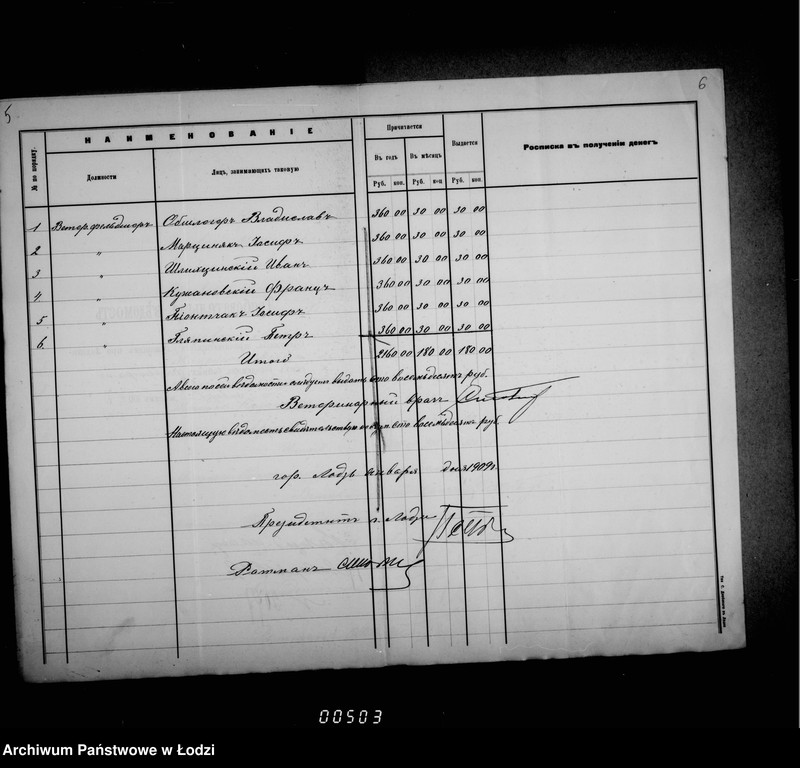 5
6
№ по порядку.
НАИМЕНОВАНІЕ
Должности
Лицъ, занимающихъ таковую
Причитается
Въ годъ
Въ мѣсяцъ
Выдается
Руб. коп. Руб. коп Руб. коп.
Росписка въ полученіи денегъ
1 Ветер. фельдшеръ Владиславъ 360 00 30 00 30 00
2 " Марцинякъ Іосифъ 360 00 30 00 30 00
3 " Шляцинскій Иванъ 360 00 30 00 30 00
4 " Кужановскій Францъ 360 00 30 00 30 00
5 " Піонтчакъ Іосифъ 360 00 30 00 30 00
6. " Гляпинскій Петръ 360 00 30 00 30 00
Итого 2160 00 180 00 180 00
А всего по сей вѣдомости слѣдуетъ выдать сто восемьдесятъ руб.
Ветеринарный врачъ
Настоящую вѣдомость свидѣтельствую сто восемьдесятъ руб.
гор. Лодзь января дня 1909 г.
Президентъ г. Лодзи
Ратманъ
00503
Archiwum Państwowe w Łodzi